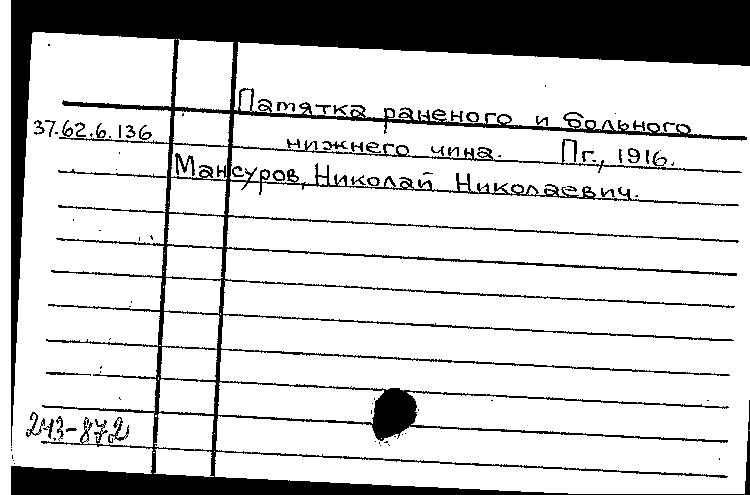 Памятка раненого и больного
37.62.6.136
нижнего чина. Пг., 1916.
Мансуров, Николай Николаевич.
243-872